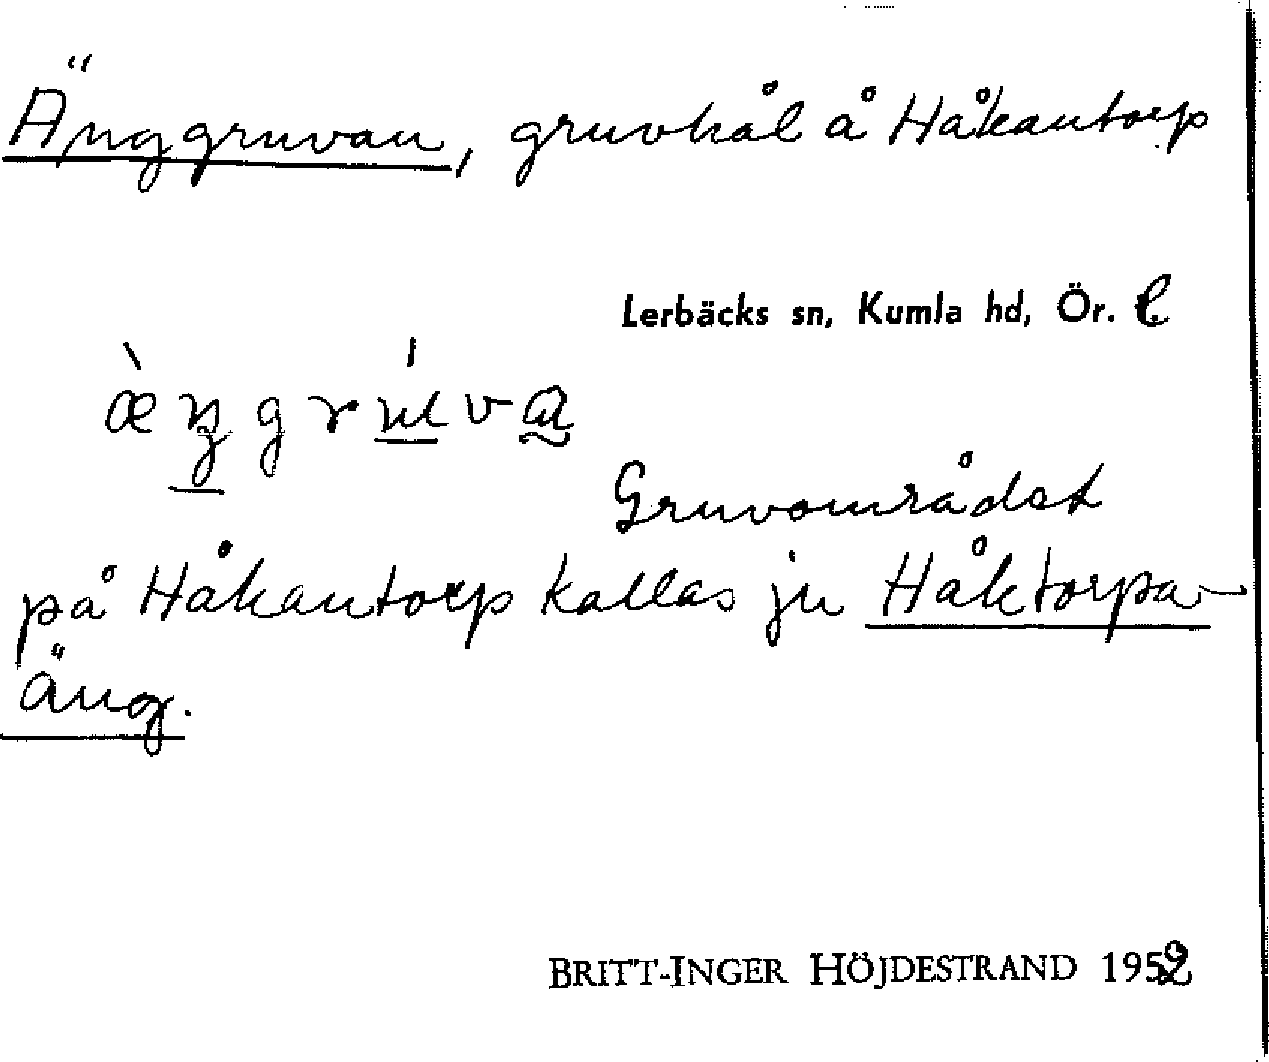 Änggruvan, gruvhål å Håkantorp
Lerbäcks sn, Kumla hd, Ör. l.
æ̀ŋgrúva
Gruvområdet
på Håkantorp kallas ju Håktorpa-
äng.
BRITT-INGER HÖJDESTRAND 1952